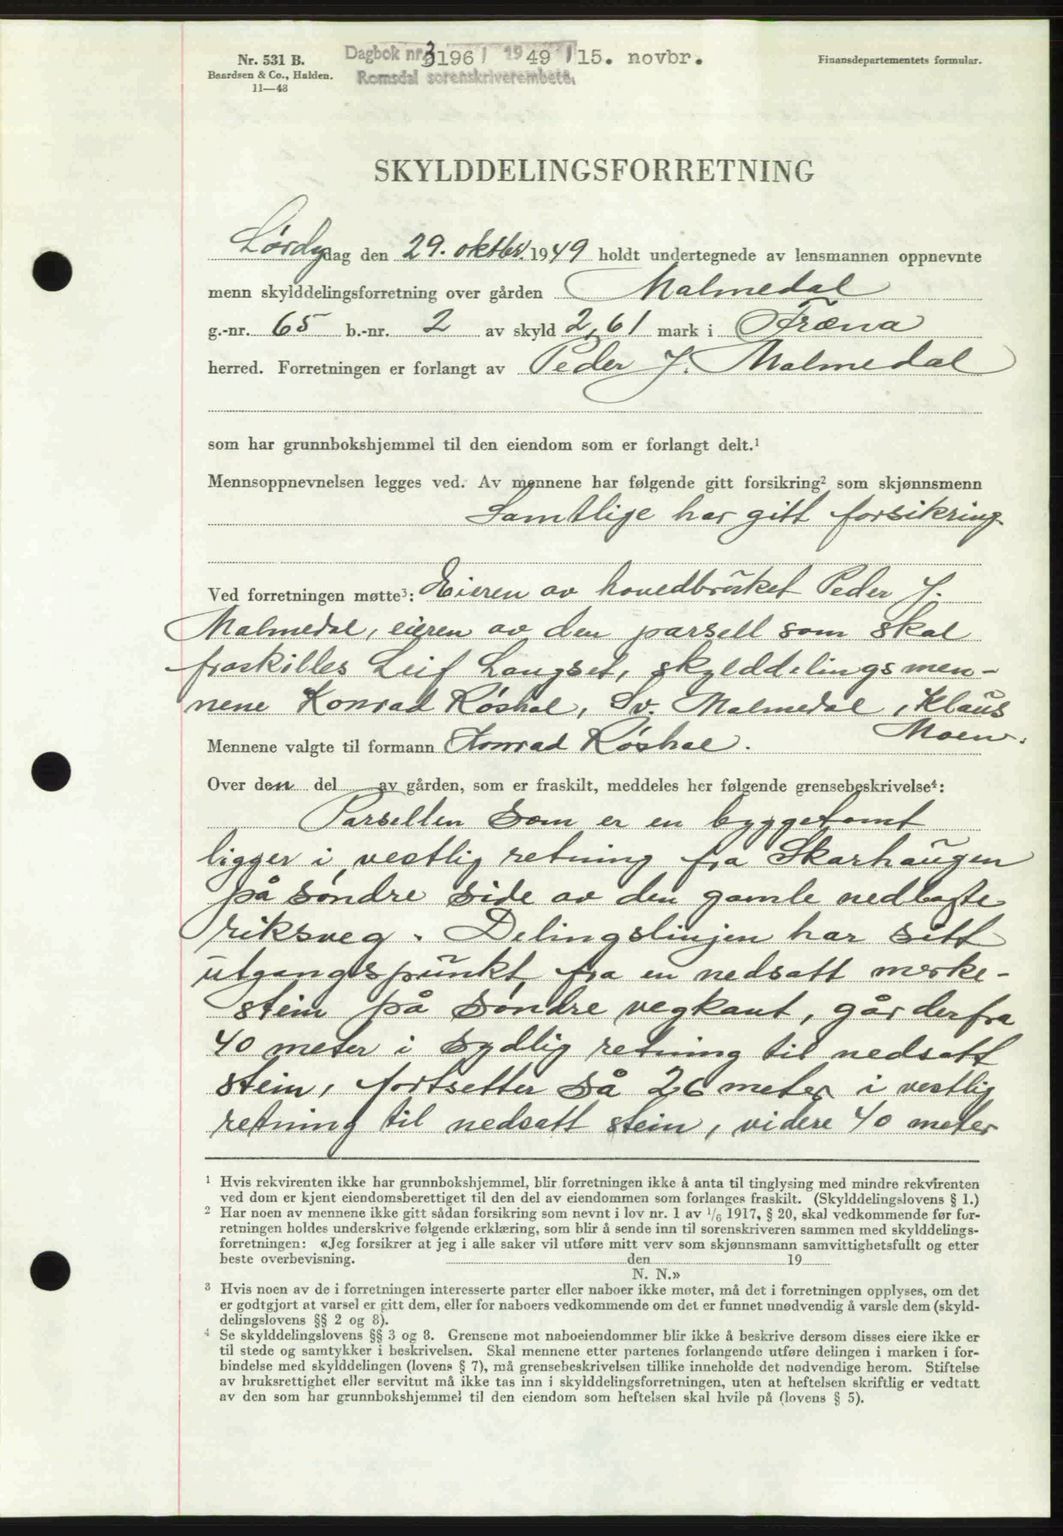 Nr. 531 B.
Baardsen & Co., Halden.
11—48
Dagbok nr. 3196 / 1949 / 15. novbr.
Romsdal sorenskriverembete.
Finansdepartementets formular.
SKYLDDELINGSFORRETNING
Lørdag den 29. oktbr. 1949 holdt undertegnede av lensmannen oppnevnte
menn skylddelingsforretning over gården Malmedal
g.-nr. 65 b.-nr. 2 av skyld 2,61 mark i Fræna
herred. Forretningen er forlangt av Peder J. Malmedal
som har grunnbokshjemmel til den eiendom som er forlangt delt.¹
Mennsoppnevnelsen legges ved. Av mennene har følgende gitt forsikring² som skjønnsmenn
Samtlige har gitt forsikring
Ved forretningen møtte³: Eieren av hovedbruket Peder J.
Malmedal, eieren av den parsell som skal
fraskilles Leif Langset, skylddelingsmen-
nene Konrad Røshol, Sv. Malmedal, Klaus
Moen.
Mennene valgte til formann Konrad Røshol.
Over den del av gården, som er fraskilt, meddeles her følgende grensebeskrivelse⁴:
Parsellen som er en byggetomt
ligger i vestlig retning fra Skarhaugen
på søndre side av den gamle nedlagte
riksveg. Delingslinjen har sitt
utgangspunkt fra en nedsatt merke-
stein på søndre vegkant, går derfra
40 meter i sydlig retning til nedsatt
stein, fortsetter så 26 meter i vestlig
retning til nedsatt stein, videre 40 meter
¹ Hvis rekvirenten ikke har grunnbokshjemmel, blir forretningen ikke å anta til tinglysing med mindre rekvirenten
ved dom er kjent eiendomsberettiget til den del av eiendommen som forlanges fraskilt. (Skylddelingslovens § 1.)
² Har noen av mennene ikke gitt sådan forsikring som nevnt i lov nr. 1 av 1/6 1917, § 20, skal vedkommende før for-
retningen holdes underskrive følgende erklæring, som blir å sende inn til sorenskriveren sammen med skylddelings-
forretningen: «Jeg forsikrer at jeg i alle saker vil utføre mitt verv som skjønnsmann samvittighetsfullt og etter
beste overbevisning. den 19
N. N.»
³ Hvis noen av de i forretningen interesserte parter eller naboer ikke møter, må det i forretningen opplyses, om det
er godtgjort at varsel er gitt dem, eller for naboers vedkommende om det er funnet unødvendig å varsle dem (skyld-
delingslovens §§ 2 og 8).
⁴ Se skylddelingslovens §§ 3 og 8. Grensene mot naboeiendommer blir ikke å beskrive dersom disses eiere ikke er
til stede og samtykker i beskrivelsen. Skal mennene etter partenes forlangende utføre delingen i marken i for-
bindelse med skylddelingen (lovens § 7), må grensebeskrivelsen tillike inneholde det nødvendige herom. Stiftelse
av bruksrettighet eller servitut må ikke tas inn i skylddelingsforretningen, uten at heftelsen skriftlig er vedtatt
av den som har grunnbokshjemmel til den eiendom som heftelsen skal hvile på (lovens § 5).